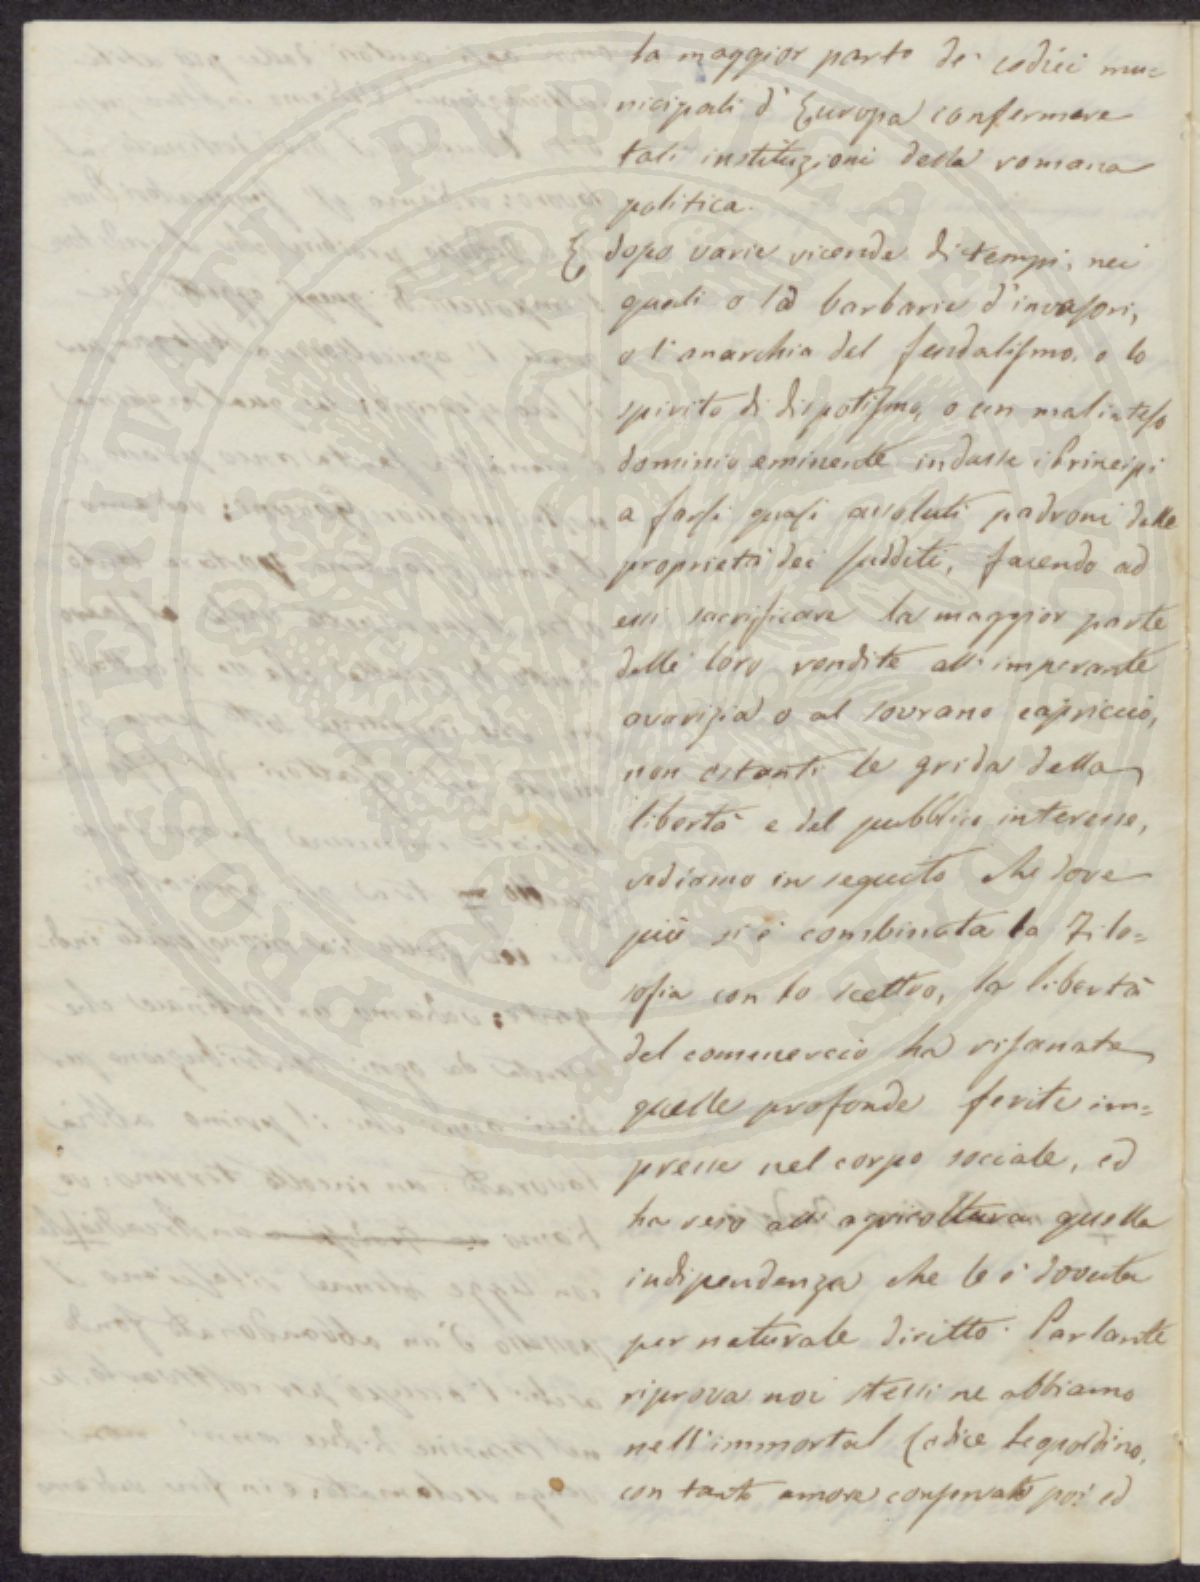 la maggior parte de' codici mu=
nicipali d'Europa confermare
tali instituzioni della romana
politica.
E dopo varie vicende di tempi, nei
quali o la barbarie d'invasori,
o l'anarchia del feudalismo, o lo
spirito di dispotismo, o un malinteso
dominio eminente indusse i Principi
a farsi quasi assoluti padroni delle
proprietà dei sudditi, facendo ad
essi sacrificare la maggior parte
delle loro rendite all'imperante
avarizia o al sovrano capriccio,
non ostanti le grida della
libertà e del pubblico interesse,
vediamo in seguito che dove
più si è combinata la Filo=
sofia con lo scettro, la libertà
del commercio ha risanate
quelle profonde ferite im=
presse nel corpo sociale, ed
ha reso all'agricoltura quella
indipendenza che le è dovuta
per naturale diritto. Parlante
riprova noi stessi ne abbiamo
nell'immortal Codice Leopoldino,
con tanto amore conservato poi ed